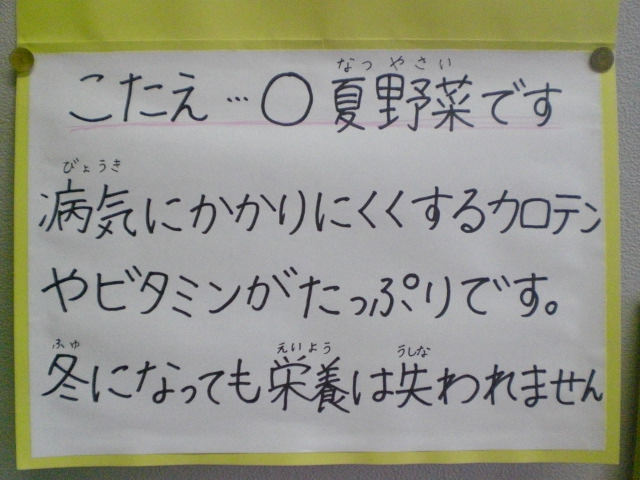 なつやさい
こたえ…〇 夏野菜です
びょうき
病気にかかりにくくするカロテン
やビタミンがたっぷりです。
ふゆ えいよう うしな
冬になっても栄養は失われません